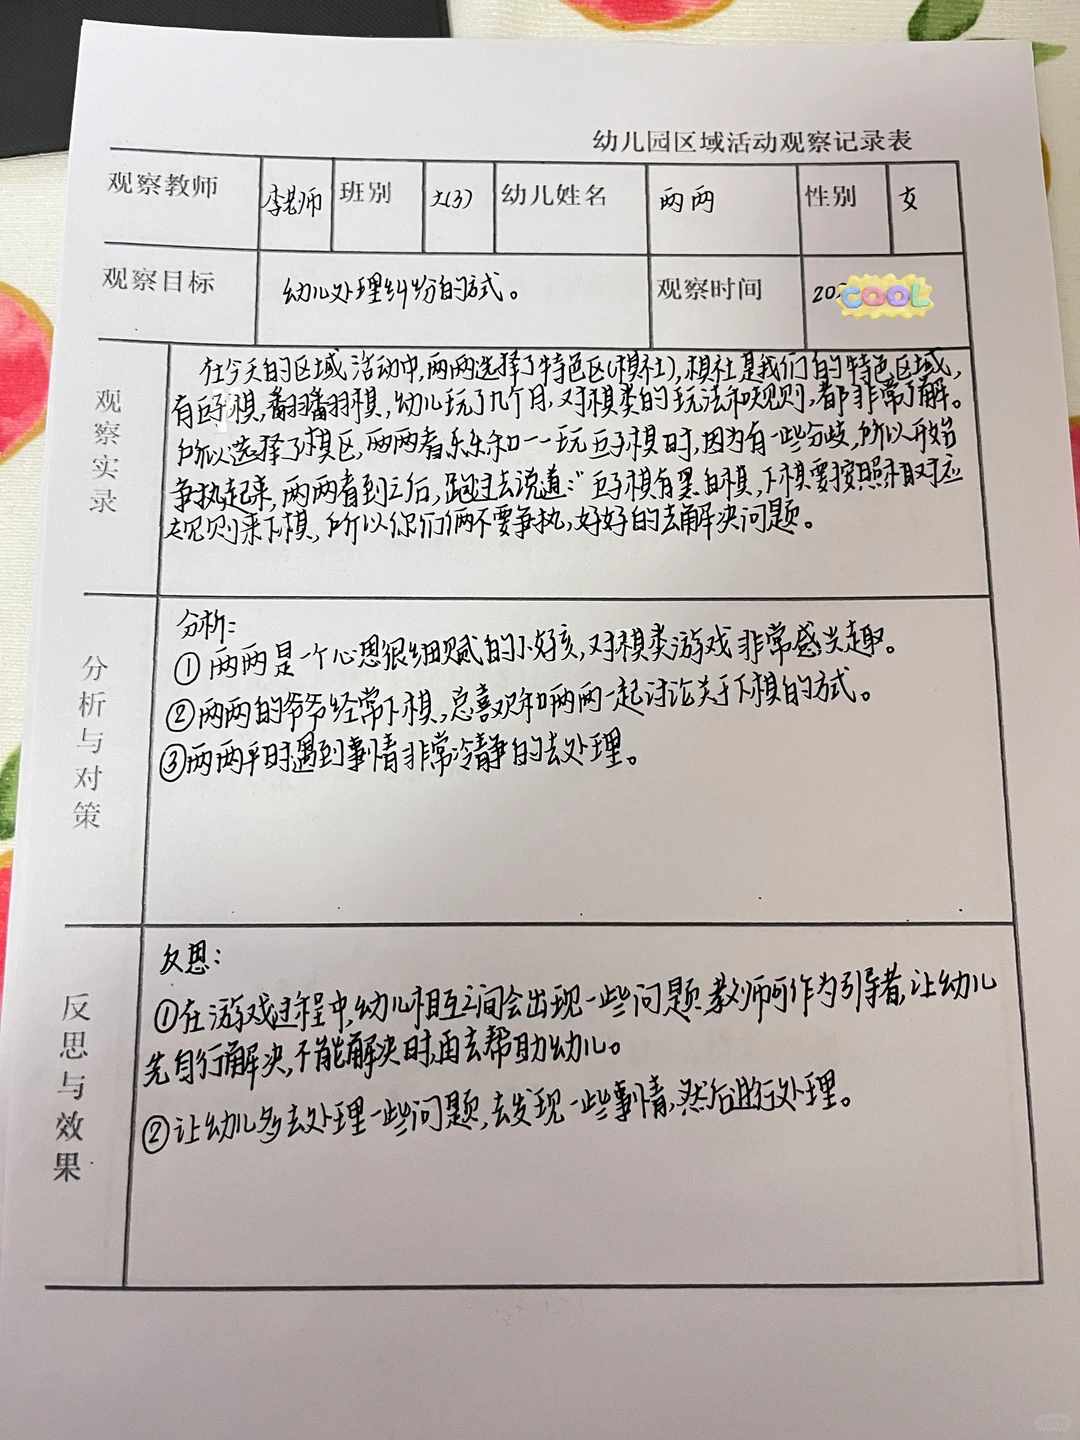 幼儿园区域活动观察记录表
观察教师 李老师 班别 大(3) 幼儿姓名 两两 性别 女
观察目标 幼儿处理纠纷的方式。 观察时间 202 COOL
观察实录
在今天的区域活动中,两两选择了特色区(棋社),棋社是我们的特色区域,
有五子棋,翻翻棋,幼儿玩了几个月,对棋类的玩法和规则,都非常了解。
所以选择了棋区,两两看乐乐和一一玩五子棋时,因为有一些分歧,所以开始
争执起来,两两看到之后,跑过去说道:“五子棋有黑白棋,下棋要按照相对应
规则来下棋,所以你们俩不要争执,好好的去解决问题。
分析与对策
分析:
①两两是一个心思很细腻的小女孩,对棋类游戏非常感兴趣。
②两两的爷爷经常下棋,总喜欢和两两一起讨论关于下棋的方式。
③两两平时遇到事情非常冷静的去处理。
反思与效果
反思:
①在游戏过程中,幼儿相互之间会出现一些问题,教师可作为引导者,让幼儿
先自行解决,不能解决时,再去帮助幼儿。
②让幼儿多去处理一些问题,去发现一些事情,然后进行处理。